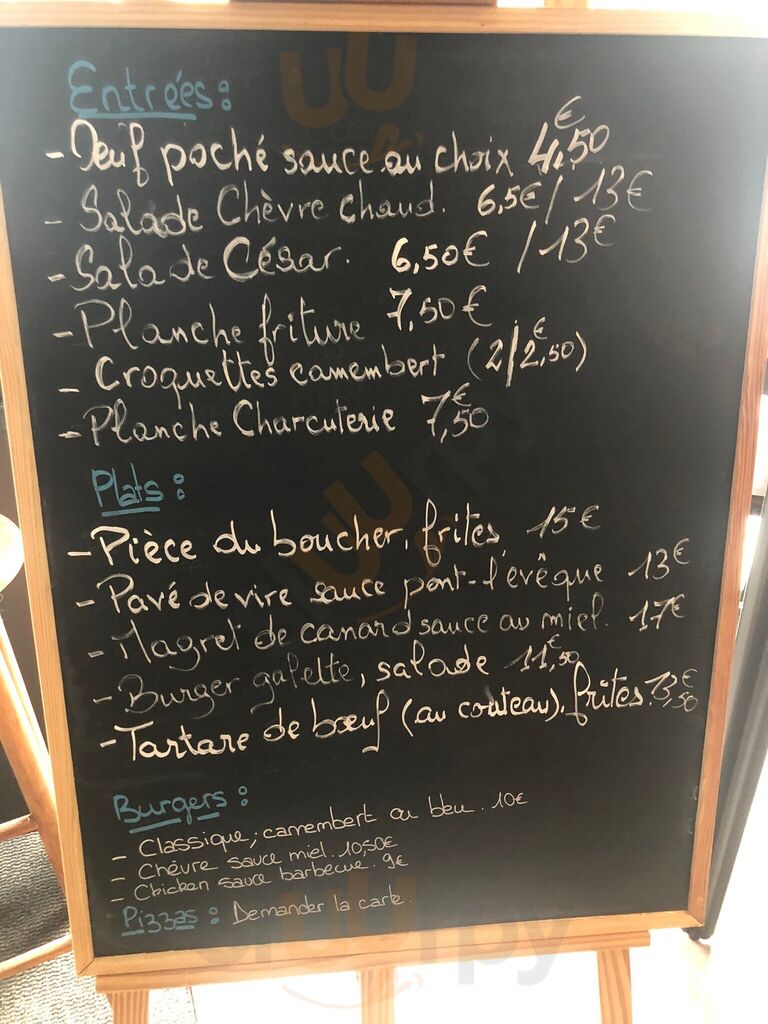 Entrées :
- Oeuf poché sauce au choix 4,50€
- Salade Chèvre chaud. 6,5€ / 13€
- Salade César. 6,50€ / 13€
- Planche friture 7,50€
- Croquettes camembert (2/2,50€)
- Planche Charcuterie 7,50€
Plats :
- Pièce du boucher, frites 15€
- Pavé de vire sauce pont-l'évêque 13€
- Magret de canard sauce au miel. 17€
- Burger galette, salade 11,50€
- Tartare de bœuf (au couteau). frites. 13,50€
Burgers :
- Classique, camembert ou bleu. 10€
- Chèvre sauce miel. 10,50€
- Chicken sauce barbecue. 9€
Pizzas : Demander la carte.